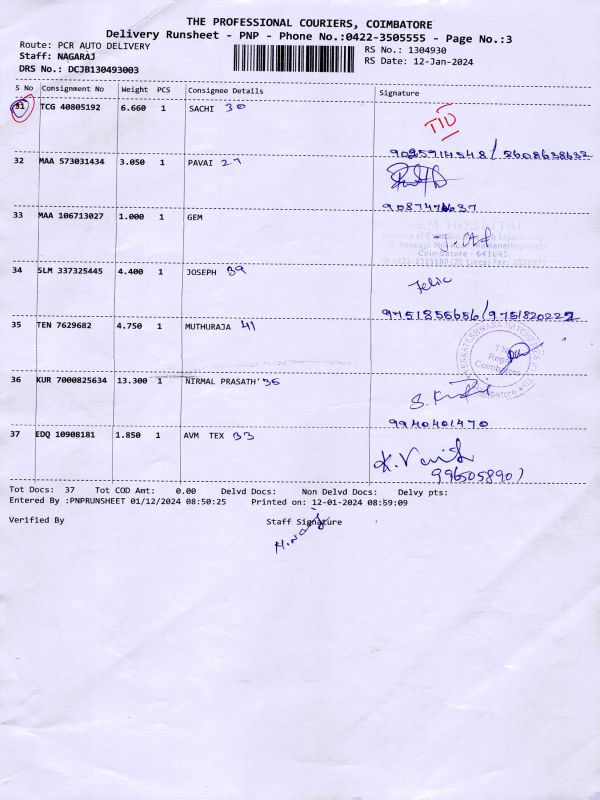 THE PROFESSIONAL COURIERS, COIMBATORE
Delivery Runsheet - PNP - Phone No.:0422-3505555 - Page No.:3
Route: PCR AUTO DELIVERY
RS No.: 1304930
Staff: NAGARAJ
RS Date: 12-Jan-2024
DRS No.: DCJB130493003
S No Consignment No Weight PCS Consignee Details Signature
31 TCG 40805192 6.660 1 SACHI 30
9025914548 / 5608638632
32 MAA 573031434 3.050 1 PAVAI 27
33 MAA 106713027 1.000 1 GEM
GEM HOSPITAL
Coimbatore - 641045
34 SLM 337325445 4.400 1 JOSEPH 39
Felix
9751855656 / 9751820222
35 TEN 7629682 4.750 1 MUTHURAJA 41
Coimbatore
36 KUR 7000825634 13.300 1 NIRMAL PRASATH 36
9940401470
37 EDQ 10908181 1.850 1 AVM TEX 33
9965058901
Tot Docs: 37 Tot COD Amt: 0.00 Delvd Docs: Non Delvd Docs: Delvy pts:
Entered By :PNPRUNSHEET 01/12/2024 08:50:25 Printed on: 12-01-2024 08:59:09
Verified By Staff Signature